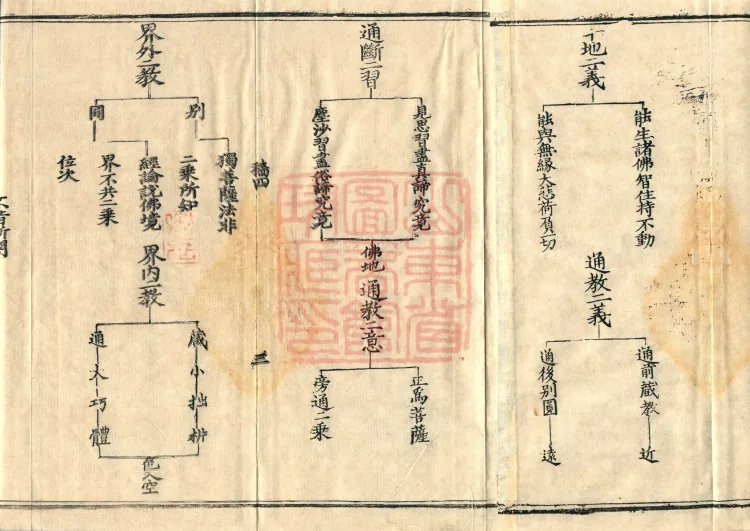 十地二義
能生諸佛智住持不動
能與無緣大悲荷負一切
通教二義
通前藏教
近
通後別圓
遠
通斷二習
見思習盡真諦究竟
塵沙習盡俗諦究竟
佛地
通教二意
正為菩薩
旁通二乘
三
界外二教
別
獨菩薩法非
二乘所知
圓
經論說佛境
界不共二乘
位次
界內二教
藏小拙析
通大巧體
色入空
山東省
圖書館
珍藏印